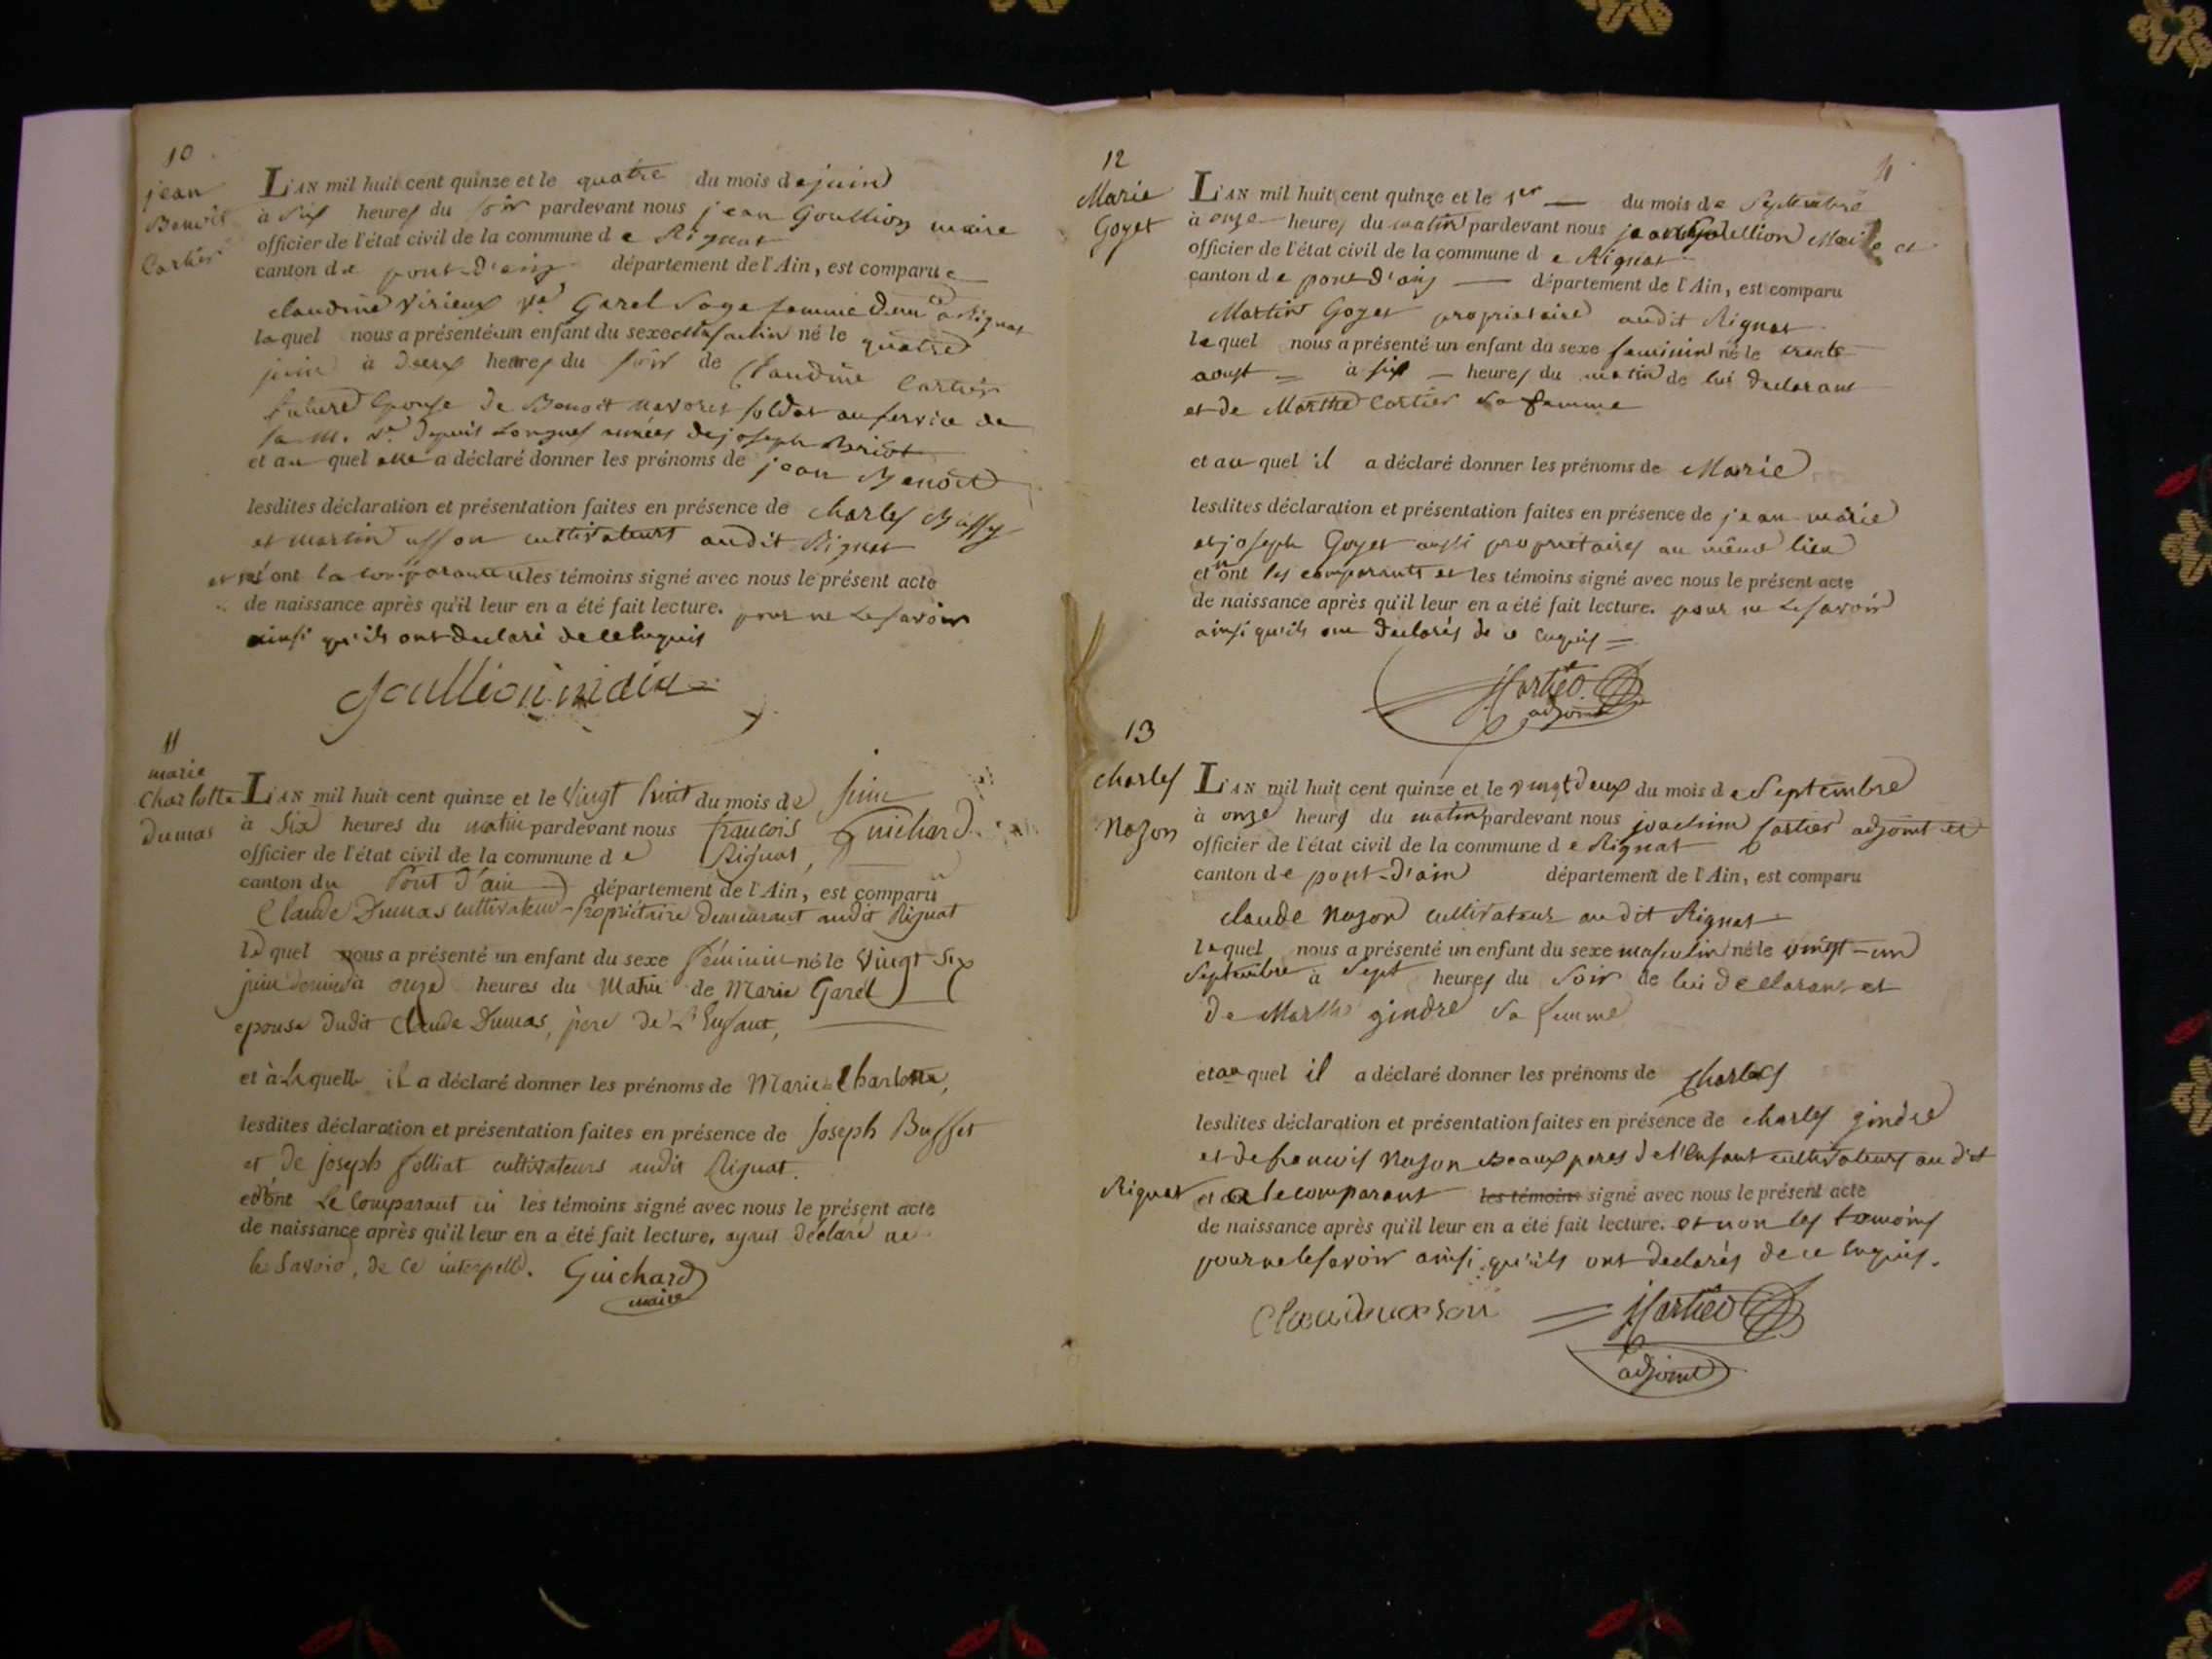 10
jean
Benoit
Cartier
L'AN mil huit cent quinze et le quatre du mois de juin
à six heures du soir pardevant nous jean Goullion maire
officier de l'état civil de la commune de Rignat
canton de pont-d'ain département de l'Ain, est comparue
claudine Virieux Ve Garel Sage femme à Rignat
laquel nous a présenté un enfant du sexe masculin né le quatre
juin à deux heures du soir de Claudine Cartier
Epouse de Benoit soldat au service de
depuis Longues années de joseph
et au quel elle a déclaré donner les prénoms de jean Benoit
lesdites déclaration et présentation faites en présence de Charles
et martin cultivateurs audit Rignat
et n'ont la comparante ni les témoins signé avec nous le présent acte
de naissance après qu'il leur en a été fait lecture. pour ne Le savoir
ainsi qu'ils ont declaré de ce Enquis
Goullion maire
11
marie
Charlotte
Dumas
L'AN mil huit cent quinze et le Vingt huit du mois de juin
à Six heures du matin pardevant nous françois Guichard
officier de l'état civil de la commune de Rignat,
canton du Pont d'ain département de l'Ain, est comparu
Claude Dumas cultivateur-Propriétaire demeurant audit Rignat
lequel nous a présenté un enfant du sexe féminin né le Vingt Six
juin dernier à onze heures du Matin de Marie Garel
epouse dudit Claude Dumas, père de L'Enfant,
et à laquelle il a déclaré donner les prénoms de Marie Charlotte,
lesdites déclaration et présentation faites en présence de Joseph Buffet
et de joseph folliat cultivateurs audit Rignat.
et n'ont Le Comparant ni les témoins signé avec nous le présent acte
de naissance après qu'il leur en a été fait lecture, ayant déclaré ne
le Savoir, de ce interpellé.
Guichard
maire
12
Marie
Goyet
L'AN mil huit cent quinze et le 1er du mois de Septembre
à onze heures du matin pardevant nous jean Goullion Maire et
officier de l'état civil de la commune de Rignat
canton de pont d'ain département de l'Ain, est comparu
Martin Goyet proprietaire audit Rignat
lequel nous a présenté un enfant du sexe feminin né le trente
aoust à six heures du matin de lui declarant
et de Marthe Cartier sa femme
et au quel il a déclaré donner les prénoms de Marie
lesdites déclaration et présentation faites en présence de jean marie
et joseph Goyet aussi proprietaires au même lieu
et n'ont les comparants et les témoins signé avec nous le présent acte
de naissance après qu'il leur en a été fait lecture. pour ne Le savoir
ainsi qu'ils ont declarés de ce Enquis =
JCartier
adjoint
13
Charles
Nazon
L'AN mil huit cent quinze et le vingt deux du mois de Septembre
à onze heures du matin pardevant nous joachim Cartier adjoint et
officier de l'état civil de la commune de Rignat
canton de pont-d'ain département de l'Ain, est comparu
claude Nazon cultivateur au dit Rignat
lequel nous a présenté un enfant du sexe masculin né le vingt-un
Septembre à Sept heures du Soir de lui declarant et
de Marthe gindre sa femme
et au quel il a déclaré donner les prénoms de Charles
lesdites déclaration et présentation faites en présence de Charles gindre
et de francois Nazon beaux peres de l'enfant cultivateurs au dit
Rignat et a le comparant les témoins signé avec nous le présent acte
de naissance après qu'il leur en a été fait lecture. et non les temoins
pour ne le savoir ainsi qu'ils ont declarés de ce Enquis.
JCartier
adjoint